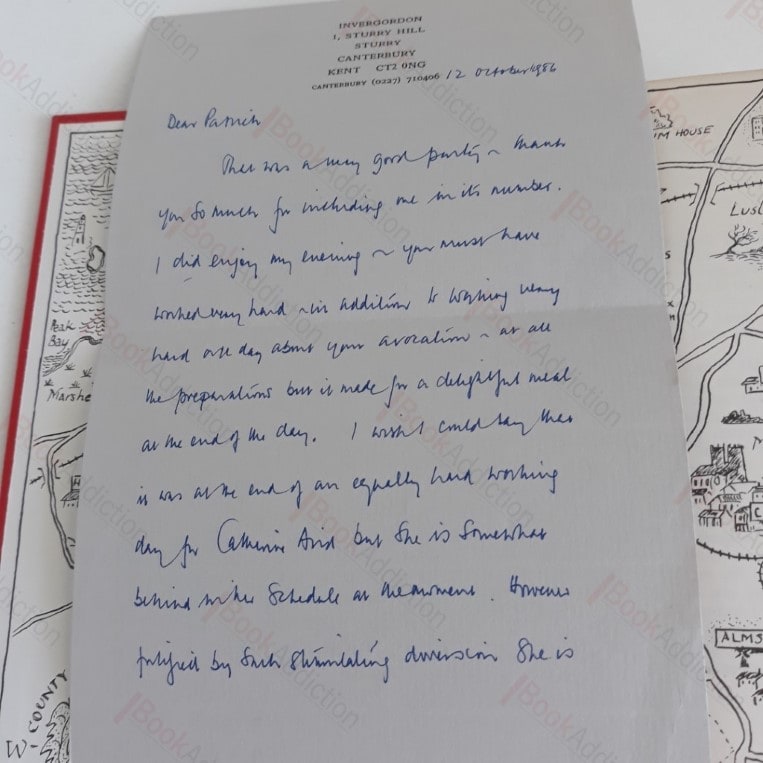 INVERGORDON
1, STURRY HILL
STURRY
CANTERBURY
KENT CT2 0NG
CANTERBURY (0227) 710406 12 October 1986
Dear Patrick
That was a very good party ~ thank
you so much for including me in its number.
I did enjoy my evening ~ you must have
worked very hard ~ in addition to working very
hard all day about your avocation ~ at all
the preparations but it made for a delightful meal
at the end of the day. I wish I could say that
it was at the end of an equally hard working
day for Catherine Aird but she is somewhat
behind in her schedule at the moment. However
fortified by such stimulating diversion she is
Peak
Bay
Marshe
W-COUNTY
M HOUSE
LUS
ALMS
BookAddiction